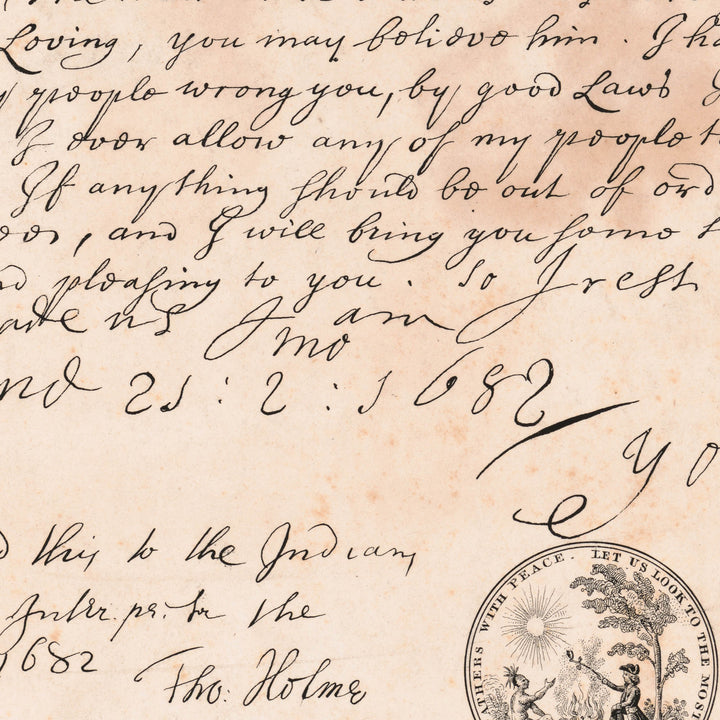 Loving, you may believe him. I ha
people wrong you, by good Laws
I ever allow any of my people t
If any thing should be out of ord
, and I will bring you some t
nd pleasing to you. So I rest
ade us I am
nd 21: 2 mo: 1682
yo
d this to the Indians
Interpr. the
1682 Tho: Holme
ATHERS WITH PEACE. LET US LOOK TO THE MOST